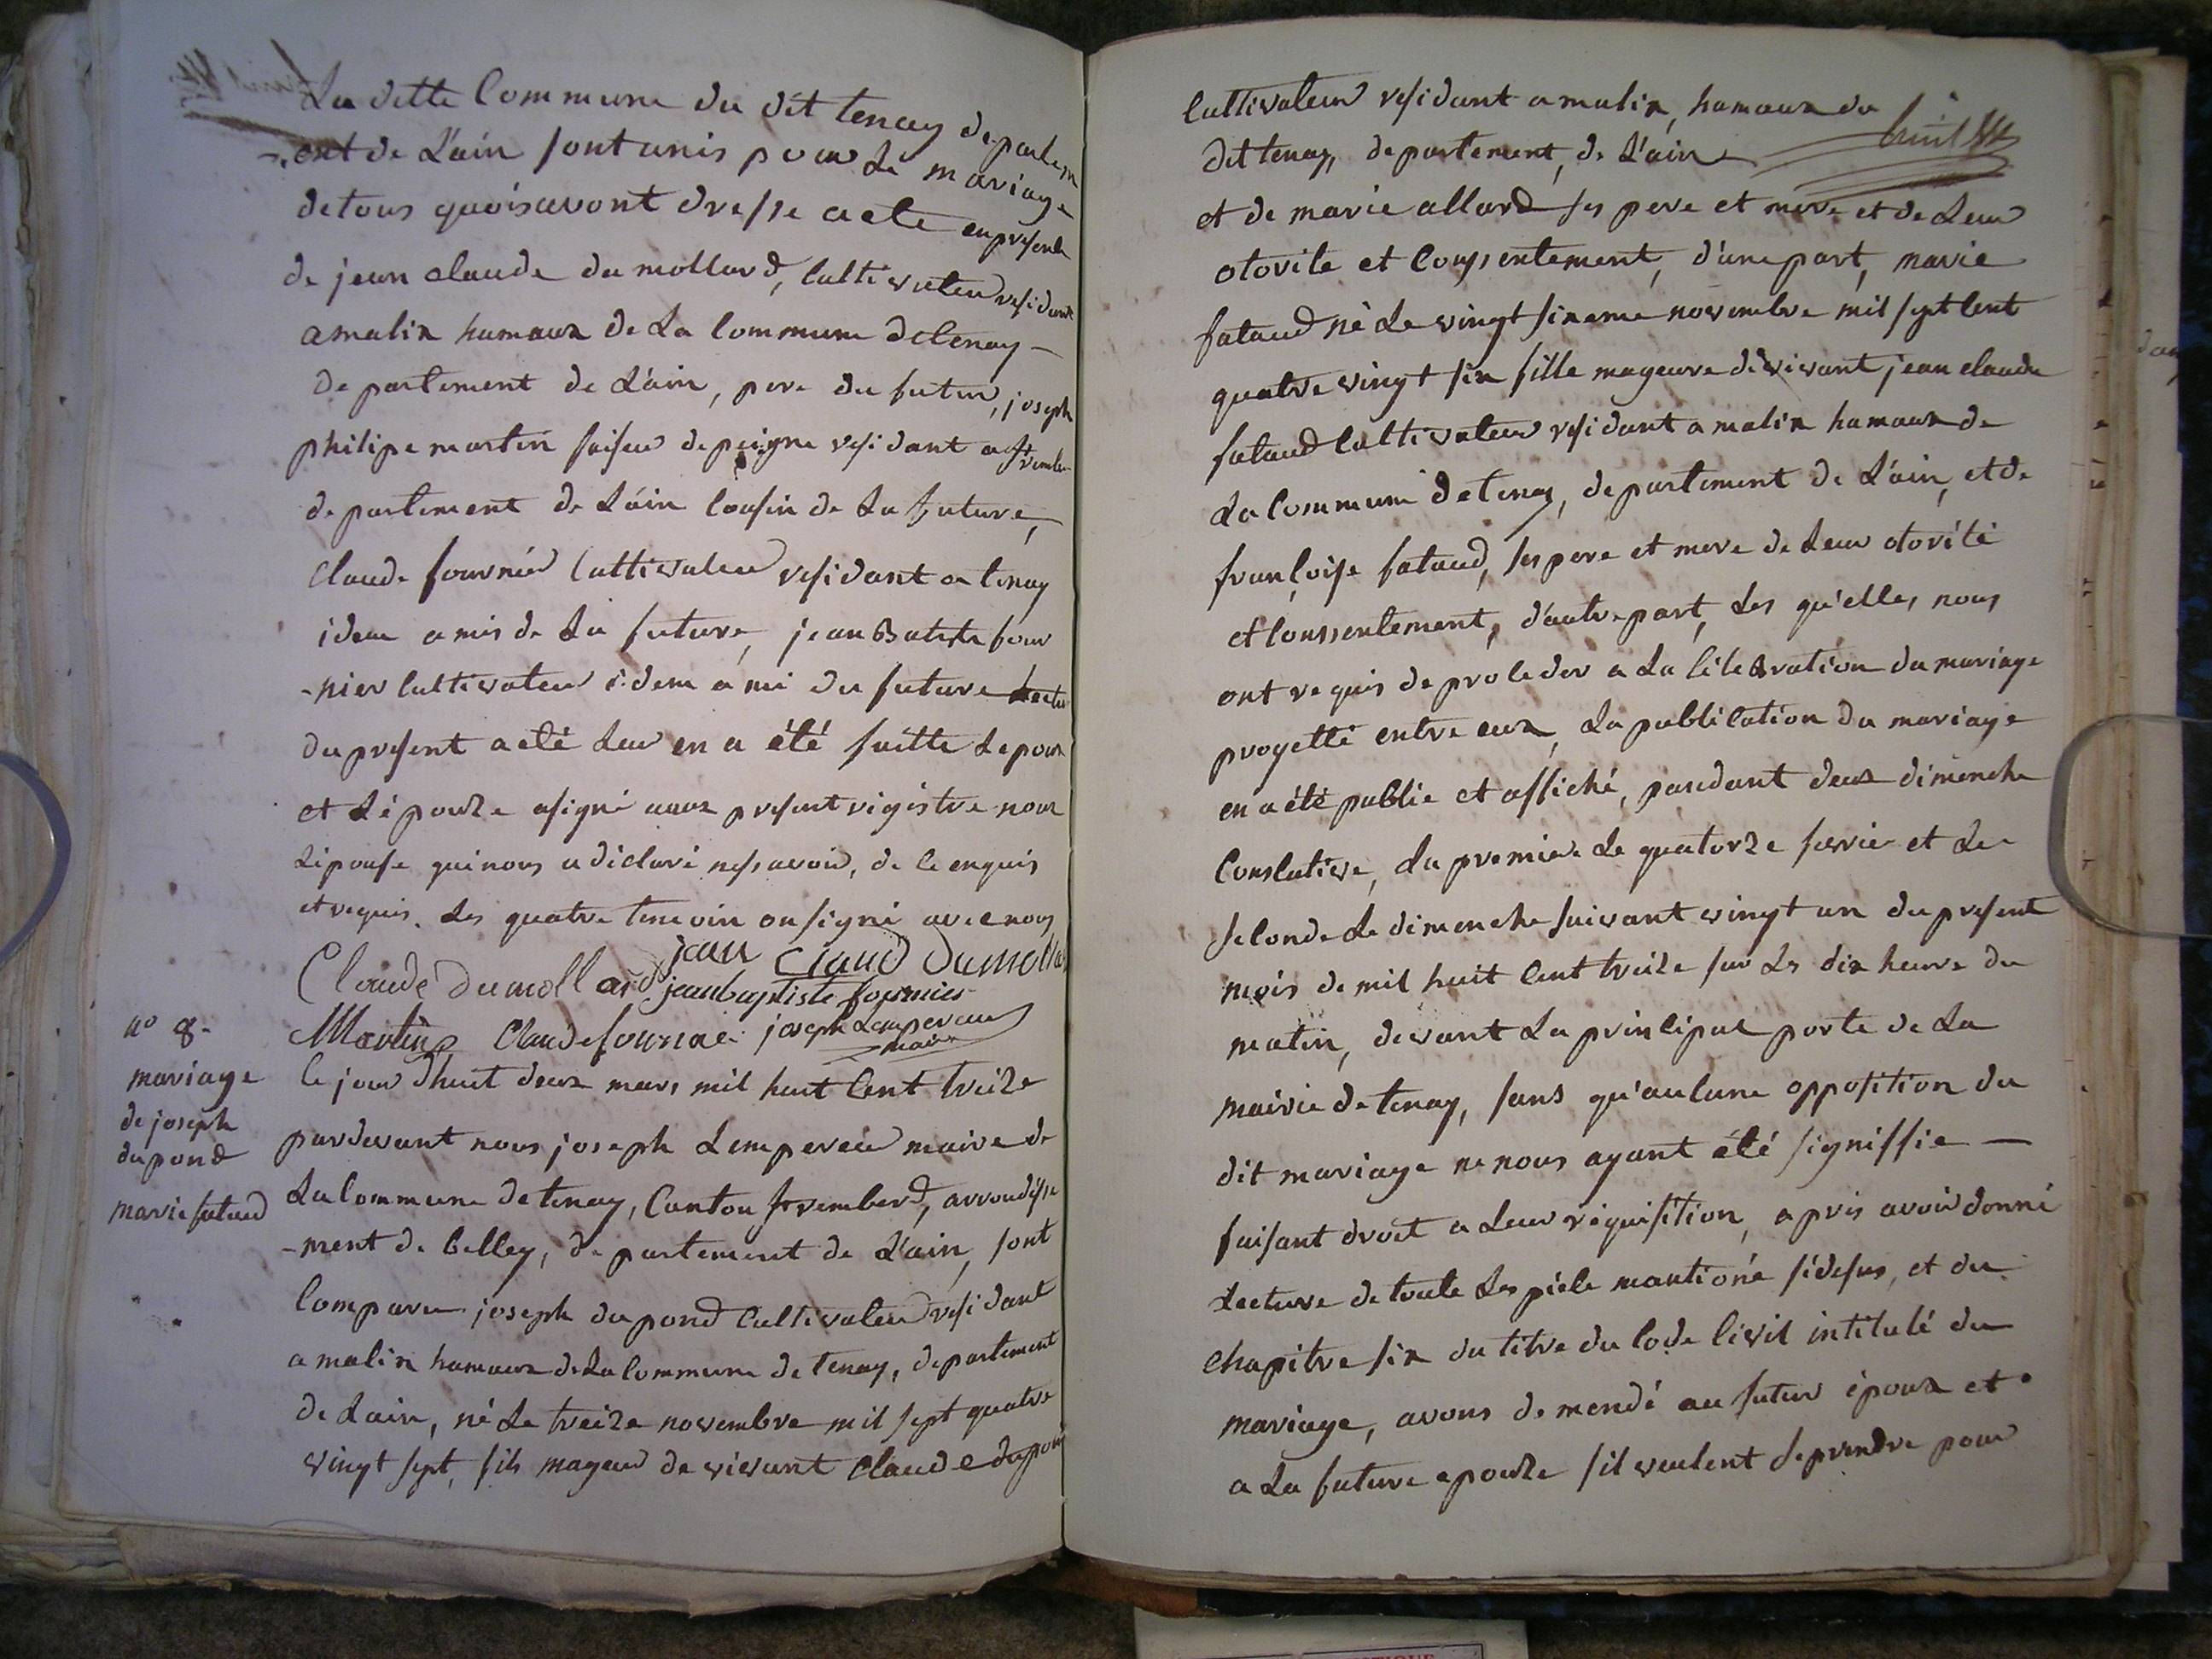 La ditte Commune du dit tenay departem
-ent de L'ain sont unis pour Le mariage
de tous quois avont dresse acte en presence
de jean claude dumollard, Cultivateur residant
a malix hamaux de La Commune de tenay -
departement de L'ain, pere du futur, joseph
philipe martin faiseur de peigne residant a St rember
departement de L'ain Cousin de La future,
Claude fournié Cultivateur residant a tenay
idem amis de La future, jean Batiste four
-nier Cultivateur idem ami du future Lectur
du present acté Leur en a été faitte Lepoux
et Lépouze asigné aux present régistre non
Lépouse qui nous a déclaré ne savoir, de ce enquis
et requis. Les quatre temoin on signé avec nous
jean Claud Dumollard
Claude Dumollard jean baptiste fournier
Martin Claude fournié joseph Lempereur
maire
n° 8-
mariage
de joseph
dupond
marie fataud
Ce jour dhuit deux mars mil huit Cent treize
pardevant nous joseph Lempereur maire de
La Commune de tenay, Canton St remberd, arrondisse
-ment de belley, departement de L'ain, sont
Comparu joseph dupond Cultivateur residant
a malix hamaux de La Commune de tenay, departement
de Lain, né Le treize novembre mil sept quatre
vingt sept, fils mageur de vivant Claude dupond
Cultivateur residant a malix, hamaux du
huit
dit tenay, departement, de L'ain
et de marie allard ses pere et mere et de Leur
otorite et Consentement, d'une part, marie
fataud né Le vingt sixeme novembre mil sept Cent
quatre vingt six fille mageure de vivant jean claude
fataud Cultivateur residant a malix hamaux de
La Commune de tenay, departement de L'ain, et de
françoise fataud, ses pere et mere de Leur otorité
et Conssentement, d'autre part, Les qu'elles nous
ont requis de proceder a La Célebration du mariage
progetté entre eux, La publication du mariage
en a été publie et affiché, pandant deux dimenche
Conscutive, La premiere Le quatorze fevrier et La
seconde Le dimenche suivant vingt un du present
mois de mil huit Cent treize sur Les dix heure du
matin, devant La principal porte de La
mairie de tenay, sans qu'aucune opposition du
dit mariage ne nous ayant été signiffie —
faisant droit a Leur réquisition, apris avoir donné
Lecture de toute Les piéce mantioné sidesus, et du
chapitre six du titre du Code Civil intitulé du
mariage, avons demendé au futur époux et
a La future epouze s'il veulent se prendre pour